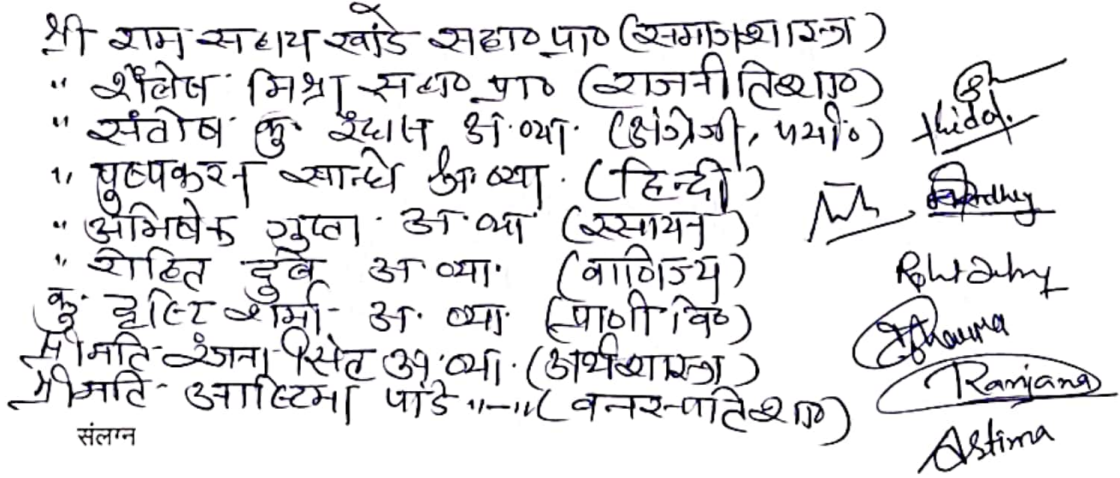 श्री राम सहाय खांडे सहा० प्रा० (समाजशास्त्र)
" शैलेष मिश्रा सहा० प्रा० (राजनीतिशा०)
" संतोष कु. अ. व्या. (अंग्रेजी, )
" पुष्पकरन सान्धे अ. व्या. (हिन्दी)
" अभिषेक गुप्ता अ. व्या. (रसायन)
" रोहित दुबे अ. व्या. (वाणिज्य)
कु. दृष्टि शर्मा अ. व्या. (प्राणी वि०)
श्रीमति रंजना सिंह अ. व्या. (अर्थशास्त्र)
श्रीमति आस्टिमा पांडे "—" (वनस्पतिशा०)
संलग्न
Ranjana
Astima